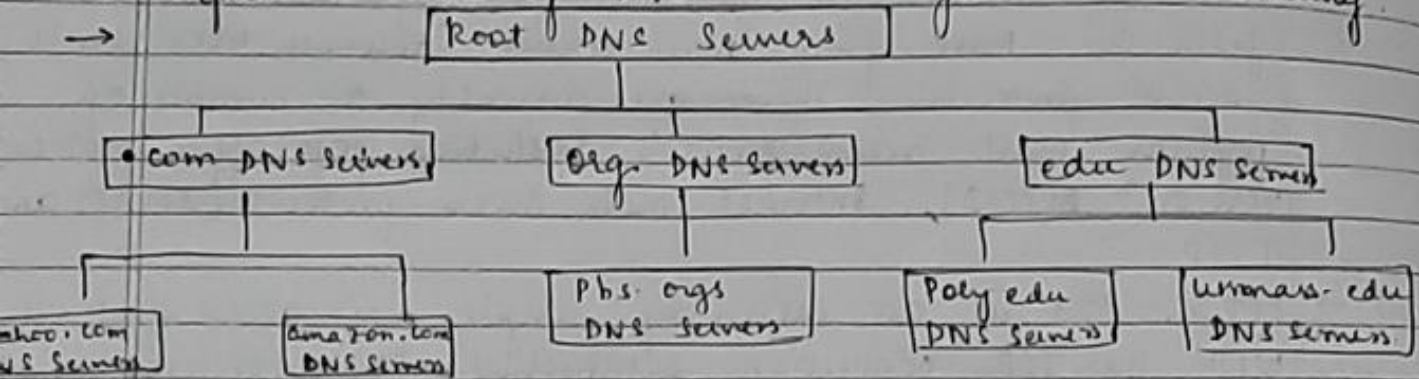 → Root DNS Servers
• com DNS Servers
org. DNS Servers
edu DNS Servers
ahoo.com
NS Servers
amazon.com
DNS Servers
Pbs. orgs
DNS Servers
Poly edu
DNS Servers
umass. edu
DNS Servers